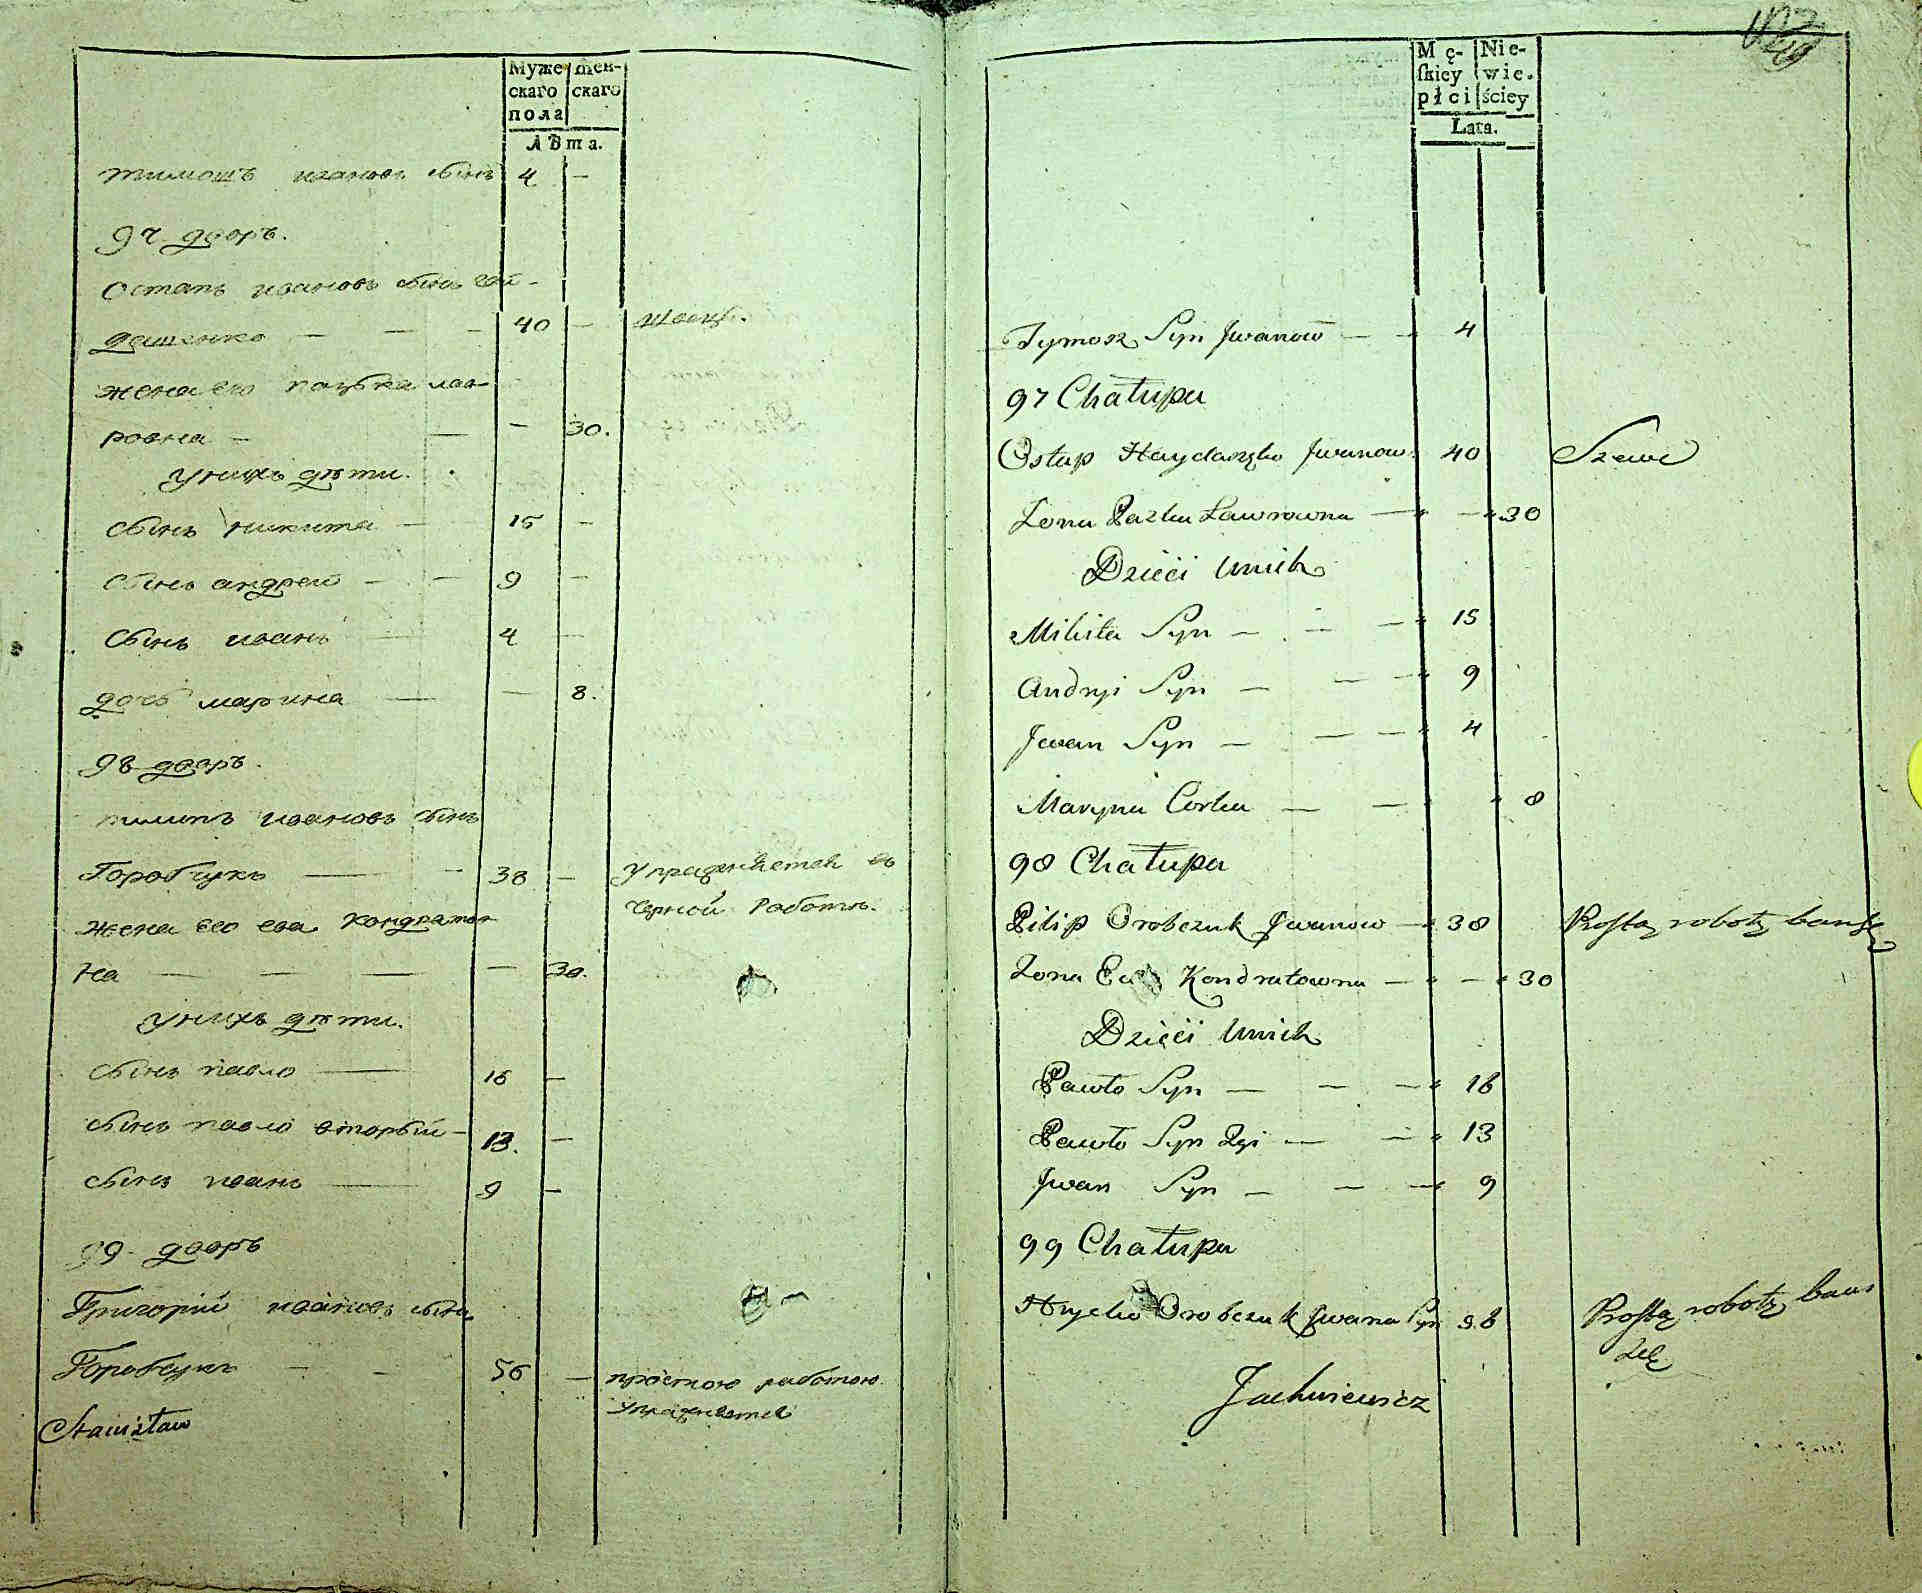 Муже
скаго
пола
Жен-
скаго
Лѣта.
тимошъ ивановъ сынъ 4 —
97 дворъ.
Остапъ ивановъ сынъ гай-
дашенко — — — 40 — швецъ.
жена его пазька лав-
ровна — — — 30.
унихъ дѣти.
сынъ никита — 15 —
сынъ андреи — — 9 —
сынъ иванъ — 4 —
дочь марина — — 8.
98 дворъ.
пилипъ ивановъ сынъ
Горобчукъ — — 38 — упражняется въ
черной работѣ.
жена его ева кондратов
на — — — — 30.
унихъ дѣти.
сынъ павло — 16 —
сынъ павло вторый — 13. —
сынъ иванъ — 9 —
99 дворъ
Григорий ивановъ сынъ
Горобчукъ — — 56 — простою работою
упражняется
Stanisław
Mę-
skiey
płci
Nie-
wie-
ściey
Lata.
Tymosz Syn Jwanow — — 4
97 Chałupa
Ostap Haydaszko Jwanow. 40 Szewc
Żona Pazka Ławrowna — — 30
Dzieci Unich
Mikita Syn — — — 15
Andryi Syn — — — 9
Jwan Syn — — — 4
Maryna Corka — — 8
98 Chałupa
Pilip Orobczuk Jwanow — 38 Prostą robotą bawi Się
Żona Ewa Kondratowna — — 30
Dzieci Unich
Pawło Syn — — — 16
Pawło Syn 2gi — — 13
Jwan Syn — — — 9
99 Chałupa
Hryćko Orobczuk Jwana Syn 56 Prostą robotą bawi
Się
Jachniewicz